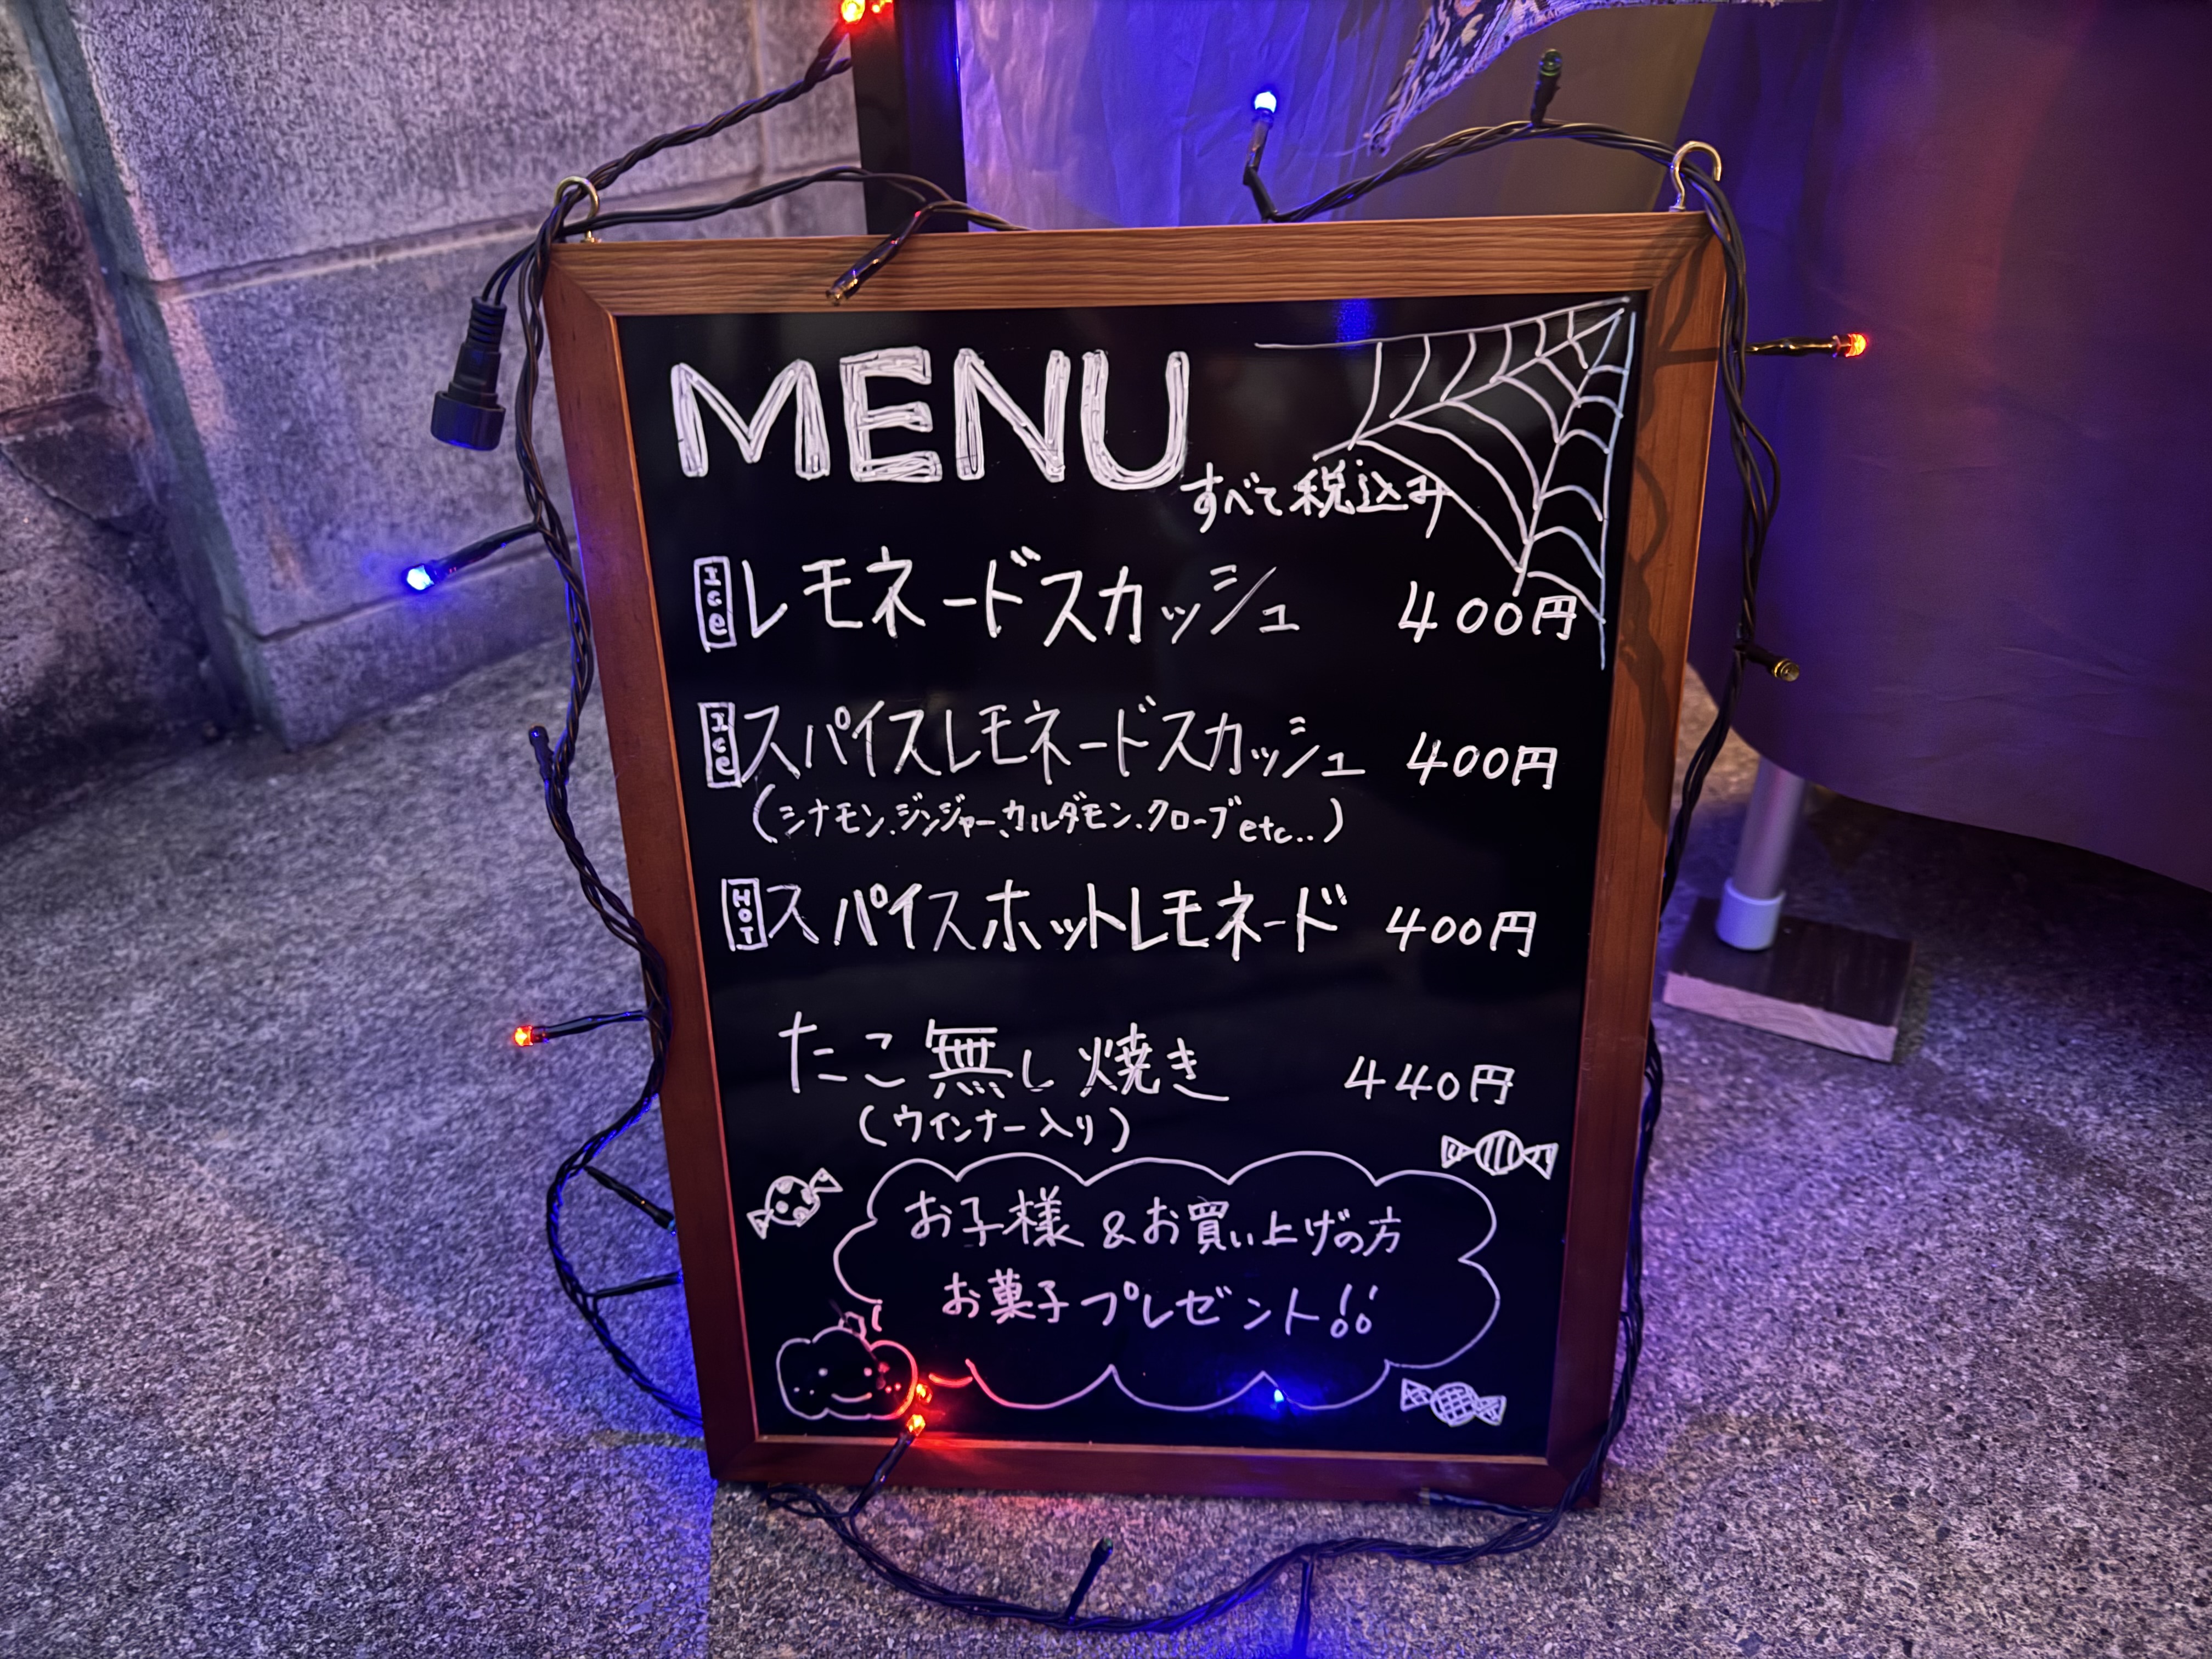 MENU
すべて税込み
Ice レモネードスカッシュ 400円
Ice スパイスレモネードスカッシュ 400円
(シナモン、ジンジャー、カルダモン、クローブetc...)
HOT スパイスホットレモネード 400円
たこ無し焼き 440円
(ウインナー入り)
お子様&お買い上げの方
お菓子プレゼント!!